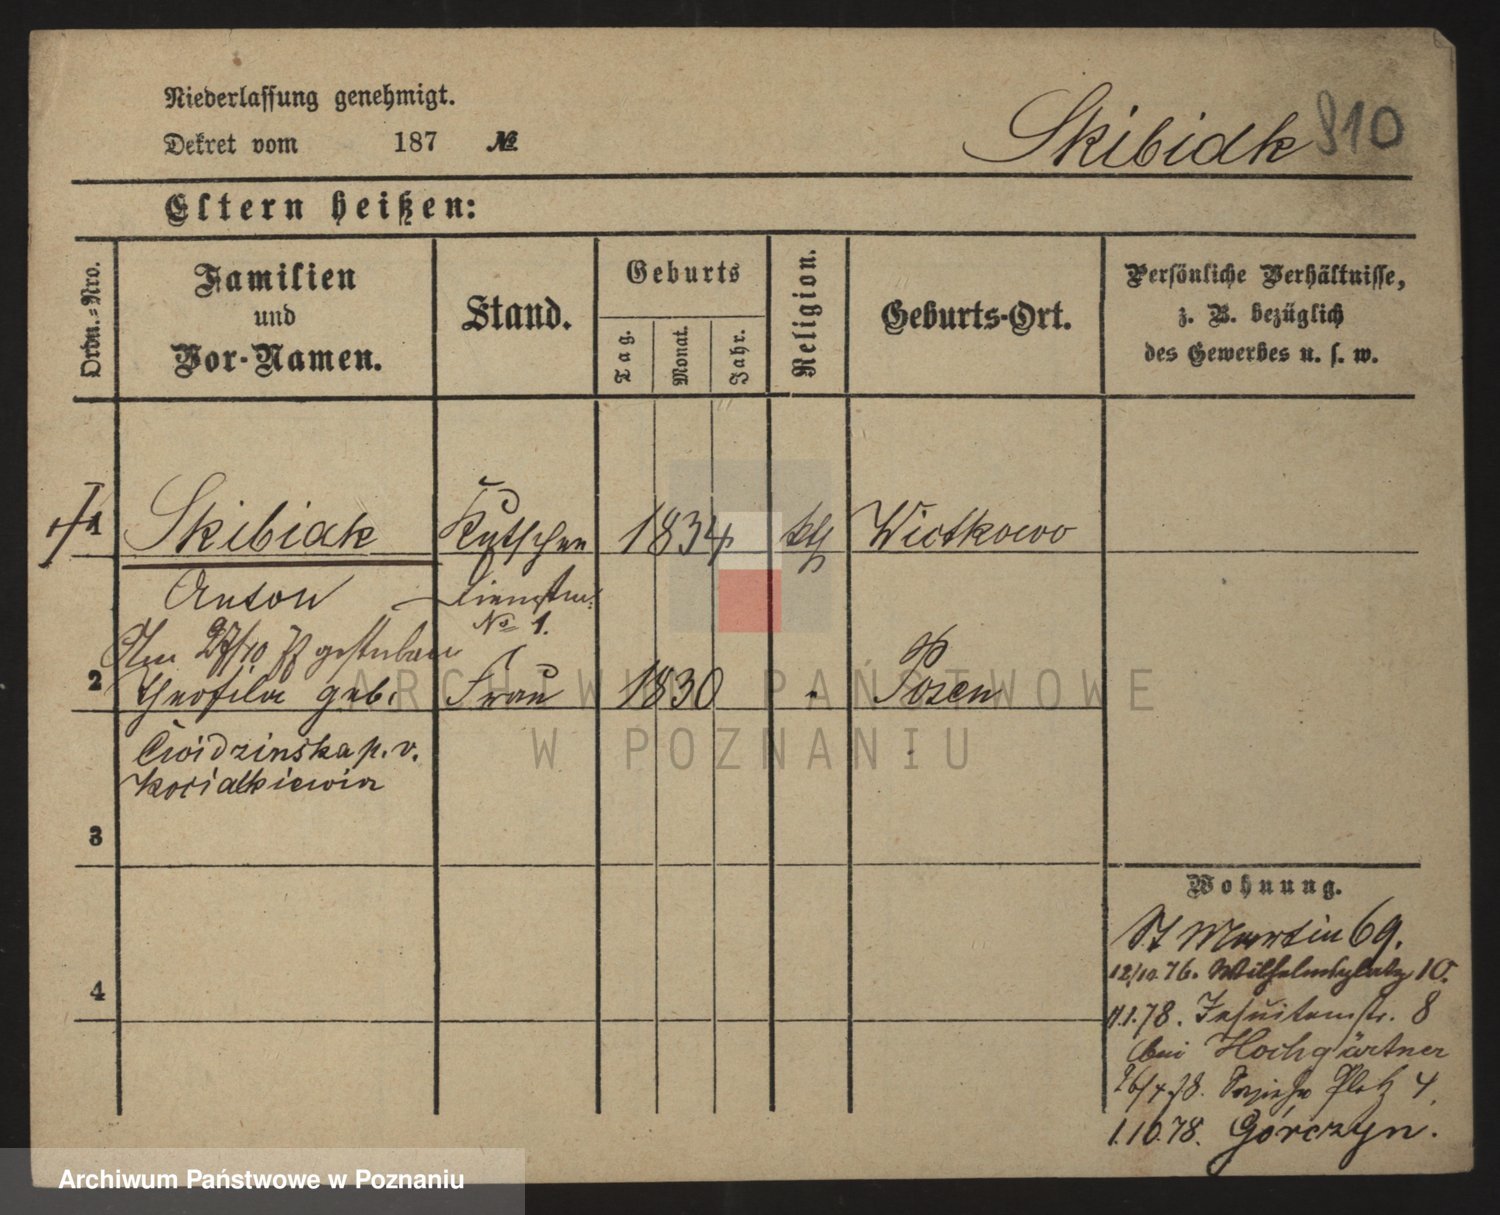 Niederlassung genehmigt.
Dekret vom 187 №
Skibidk 910
Eltern heißen:
Ordn.-Nro.
Familien
und
Vor-Namen.
Stand.
Geburts
Tag.
Monat.
Jahr.
Religion.
Geburts-Ort.
Persönliche Verhältnisse,
z. B. bezüglich
des Gewerbes u. s. w.
1 Skibiak Kutscher 1834 kth Wiotkowo
Anton
No 1.
Am 27/10 77 gestorben
2 Theofila geb. Frau 1830 " Posen
Cwidzinska p. v.
Kosialkiewicz
3
4
Wohnung.
St Martin 69.
12/10.76. Wilhelmsplatz 10.
11.1.78. Jesuitenstr. 8
bei Hochgärtner
26/4 78. Platz 4.
1.10.78. Górczyn.
ARCHIWUM PAŃSTWOWE
W POZNANIU
Archiwum Państwowe w Poznaniu